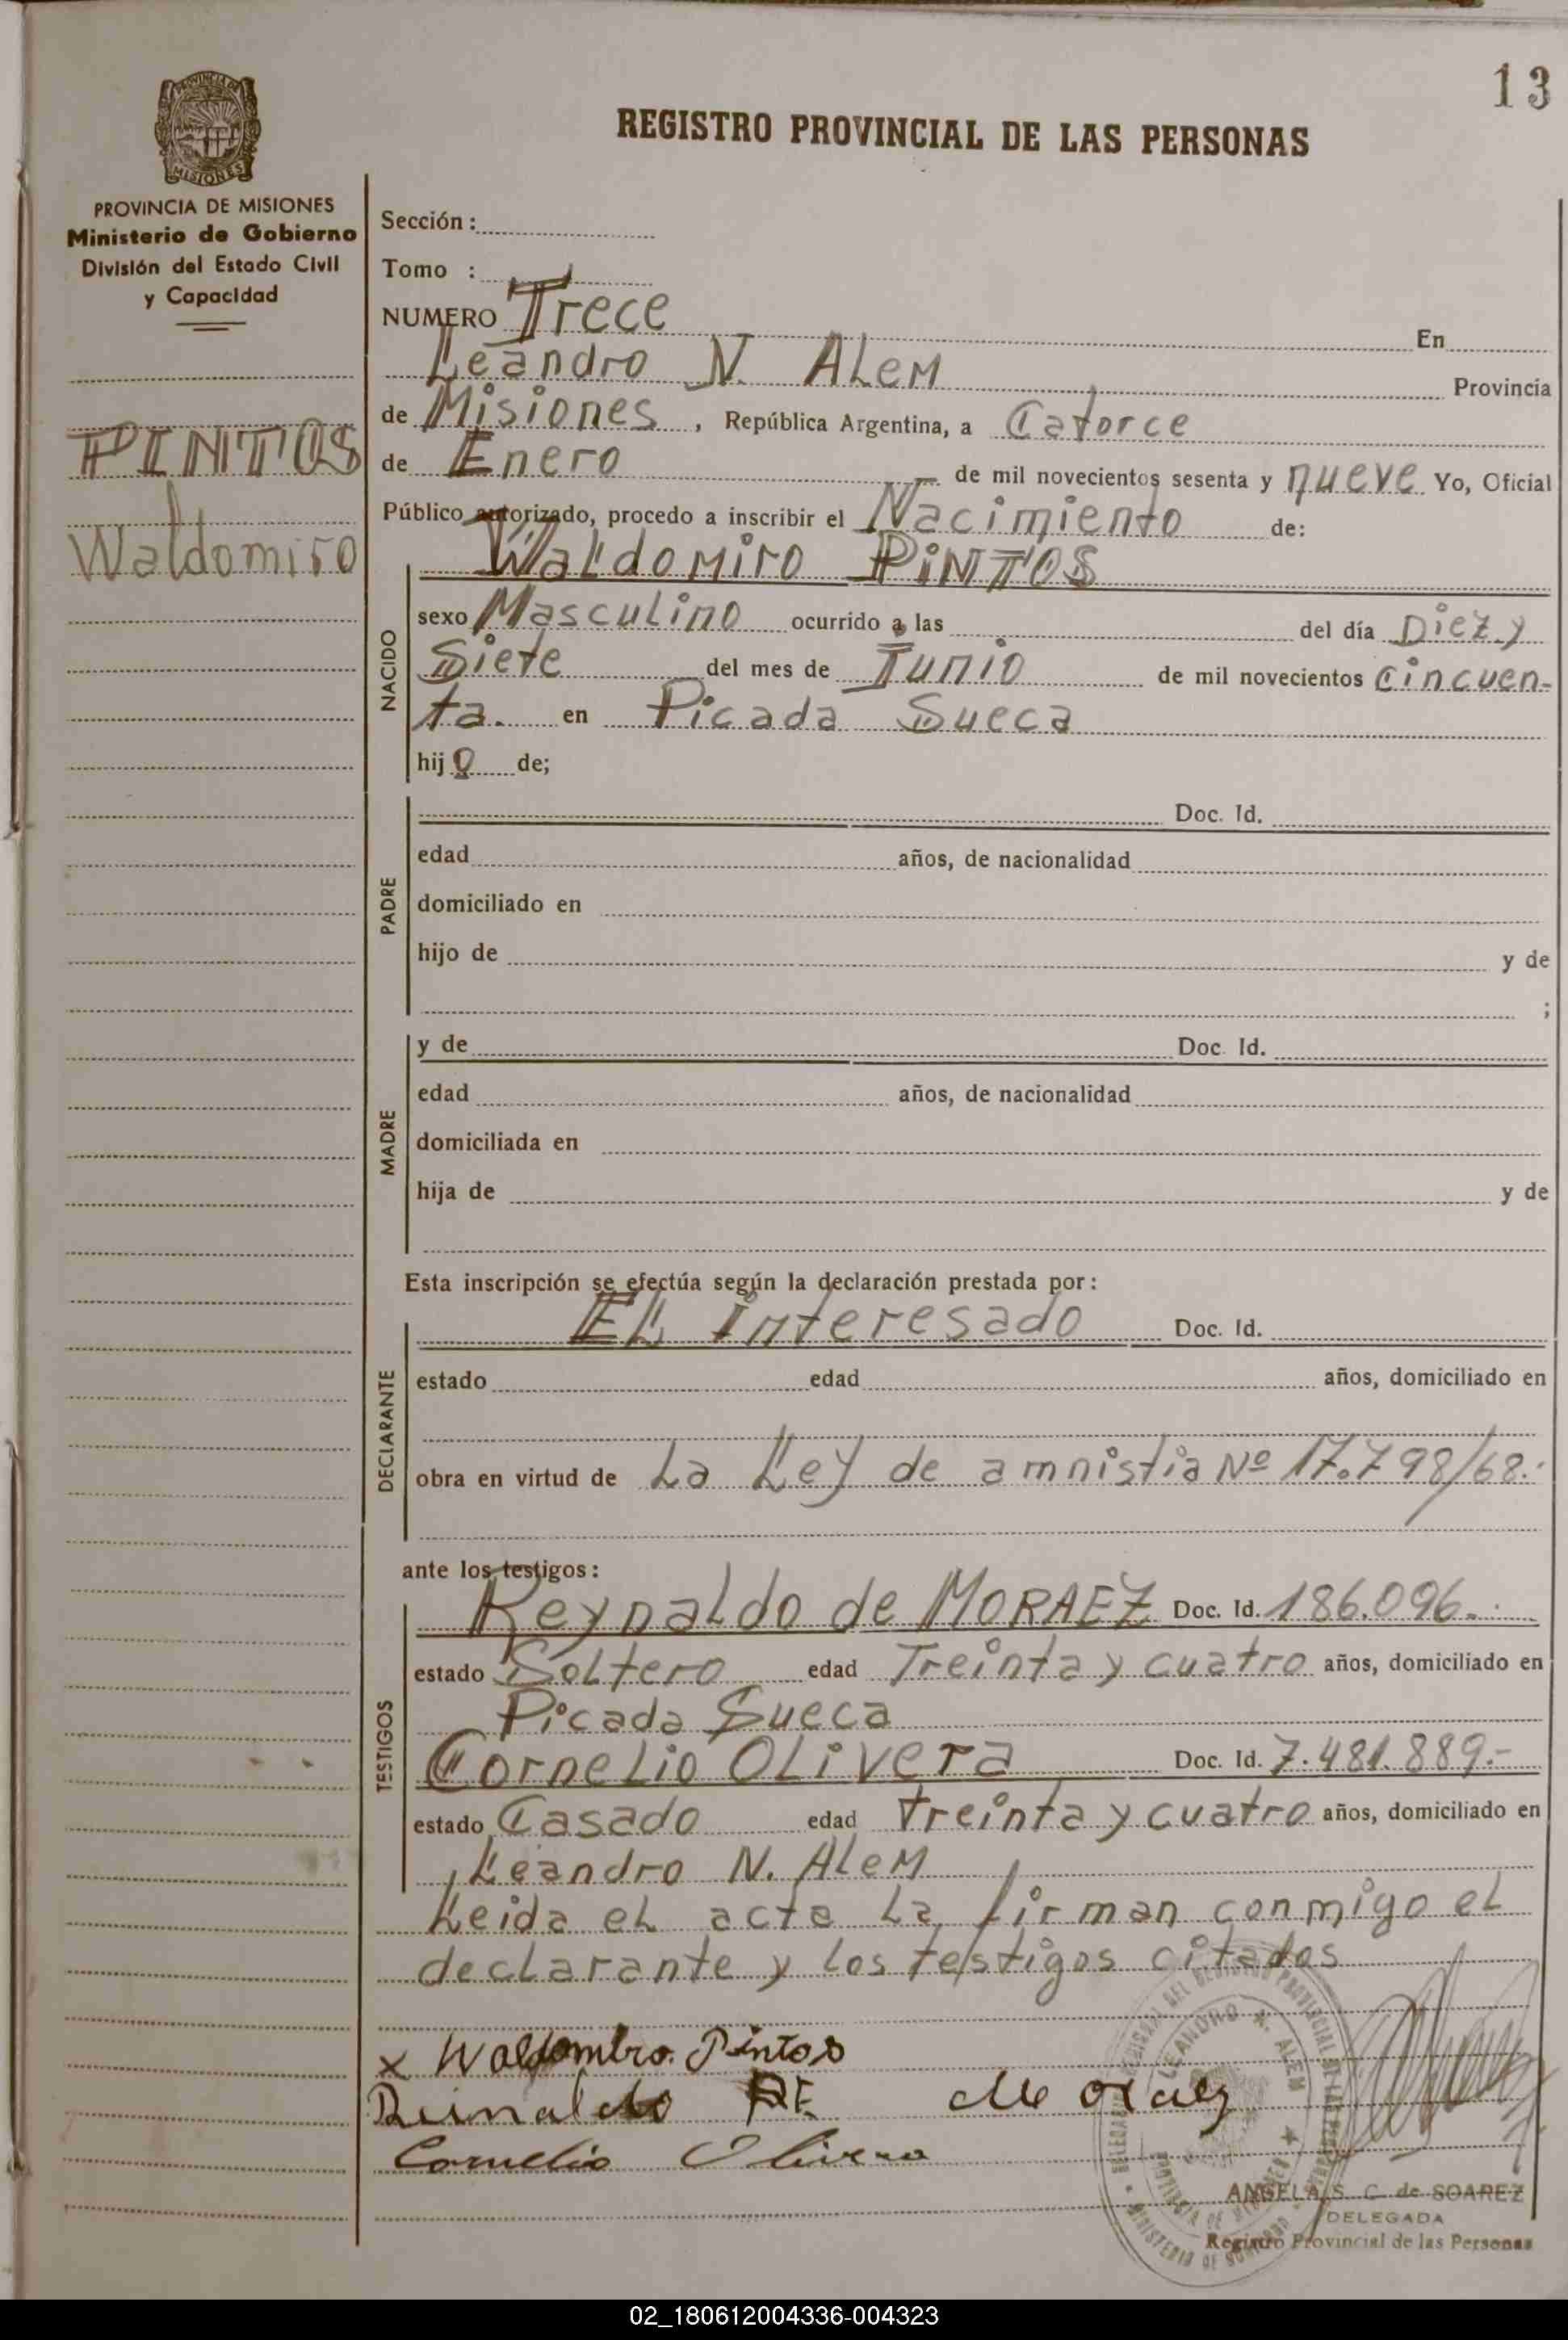 13
REGISTRO PROVINCIAL DE LAS PERSONAS
PROVINCIA DE MISIONES
MISIONES
PROVINCIA DE MISIONES
Ministerio de Gobierno
División del Estado Civil
y Capacidad
PINTOS
Waldomiro
Sección :
Tomo :
NUMERO Trece En
Leandro N. ALEM Provincia
de Misiones , República Argentina, a Catorce
de Enero de mil novecientos sesenta y nueve Yo, Oficial
Público autorizado, procedo a inscribir el Nacimiento de:
NACIDO
Waldomiro PINTOS
sexo Masculino ocurrido a las del día Diez y
Siete del mes de Junio de mil novecientos cincuen-
ta. en Picada Sueca
hijo de;
PADRE
Doc. Id.
edad años, de nacionalidad
domiciliado en
hijo de y de
;
MADRE
y de Doc. Id.
edad años, de nacionalidad
domiciliada en
hija de y de
Esta inscripción se efectúa según la declaración prestada por:
DECLARANTE
El interesado Doc. Id.
estado edad años, domiciliado en
obra en virtud de La Ley de amnistia Nº 17.798/68.-
ante los testigos:
TESTIGOS
Reynaldo de MORAEZ Doc. Id. 186.096.-
estado Soltero edad Treinta y cuatro años, domiciliado en
Picada Sueca
Cornelio OLivera Doc. Id. 7.481.889.-
estado Casado edad treinta y cuatro años, domiciliado en
Leandro N. ALEM
Leida el acta la firman conmigo el
declarante y los testigos citados
x Waldomiro Pintos
Reinaldo DE Moraez
Cornelio Olivera
LEANDRO N. ALEM
ANGELA S. C. de SOAREZ
DELEGADA
Registro Provincial de las Personas
02_180612004336-004323